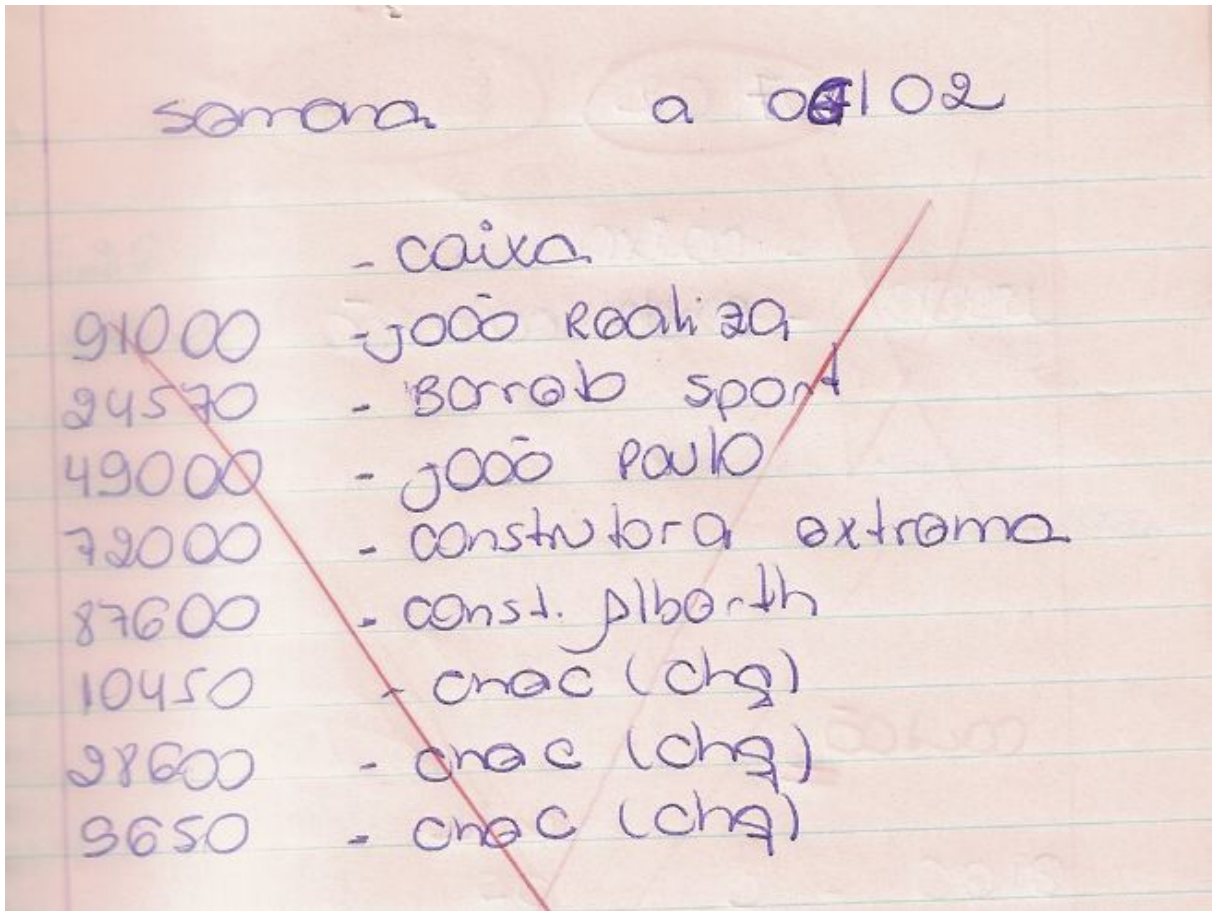 semana a 06/02
- caixa
91000 - João Realiza
24570 - Barreb sport
49000 - João Paulo
72000 - construtora extrema
87600 - const.
10450 - cnec (chq)
28600 - cnec (chq)
9650 - cnec (chq)